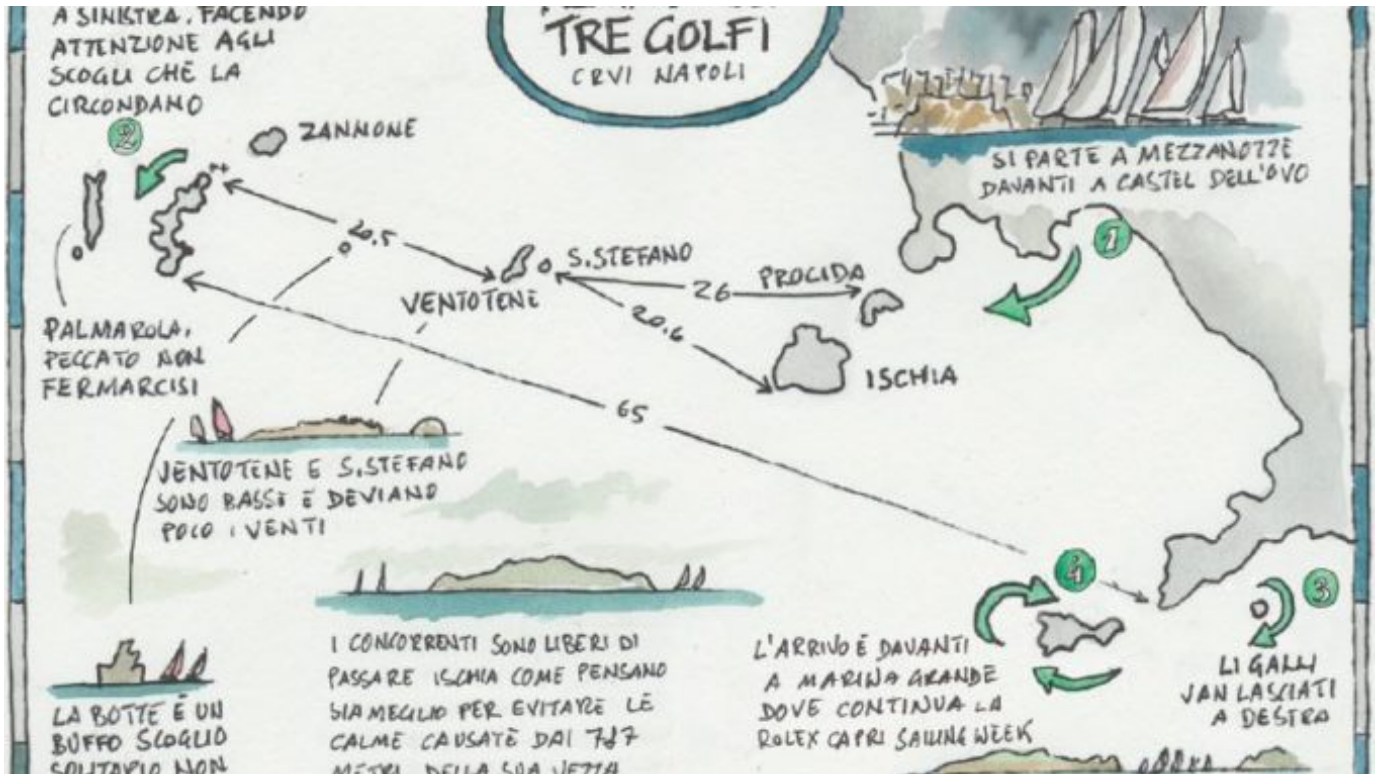 A SINISTRA, FACENDO
ATTENZIONE AGLI
SCOGLI CHE LA
CIRCONDANO
TRE GOLFI
CRVI NAPOLI
SI PARTE A MEZZANOTTE
DAVANTI A CASTEL DELL'OVO
2
ZANNONE
1
20.5
S.STEFANO
VENTOTENE
26
PROCIDA
20.6
ISCHIA
PALMAROLA,
PECCATO NON
FERMARCISI
65
VENTOTENE E S.STEFANO
SONO BASSE E DEVIANO
POCO I VENTI
4
3
I CONCORRENTI SONO LIBERI DI
PASSARE ISCHIA COME PENSANO
SIA MEGLIO PER EVITARE LE
CALME CAUSATE DAI 787
METRI DELLA SUA VETTA
L'ARRIVO È DAVANTI
A MARINA GRANDE
DOVE CONTINUA LA
ROLEX CAPRI SAILING WEEK
LI GALLI
VAN LASCIATI
A DESTRA
LA BOTTE È UN
BUFFO SCOGLIO
SOLITARIO NON